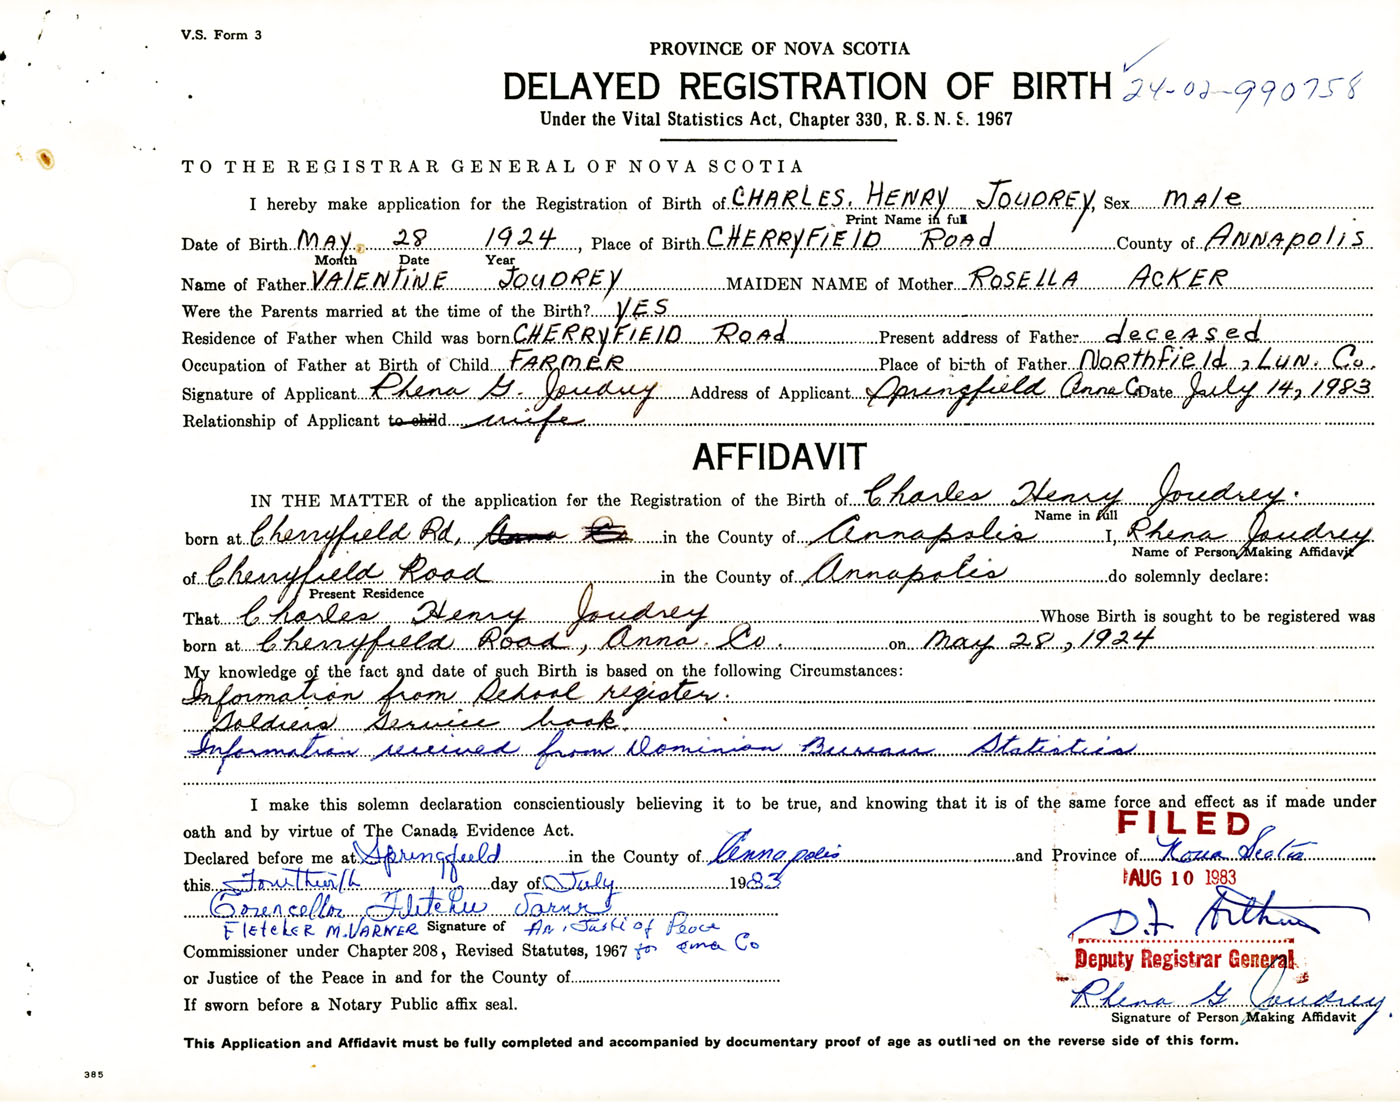 V.S. Form 3
PROVINCE OF NOVA SCOTIA
DELAYED REGISTRATION OF BIRTH 24-02-990758
Under the Vital Statistics Act, Chapter 330, R. S. N. S. 1967
TO THE REGISTRAR GENERAL OF NOVA SCOTIA
I hereby make application for the Registration of Birth of CHARLES. HENRY JOUDREY, Sex MALE
Print Name in full
Date of Birth MAY 28 1924, Place of Birth CHERRYFIELD ROAD County of ANNAPOLIS
Month Date Year
Name of Father VALENTINE JOUDREY MAIDEN NAME of Mother ROSELLA ACKER
Were the Parents married at the time of the Birth? YES
Residence of Father when Child was born CHERRYFIELD ROAD Present address of Father deceased
Occupation of Father at Birth of Child FARMER Place of birth of Father NORTHFIELD, LUN. Co.
Signature of Applicant Rhena G. Joudrey Address of Applicant Springfield Anna Co Date July 14, 1983
Relationship of Applicant to child wife
AFFIDAVIT
IN THE MATTER of the application for the Registration of the Birth of Charles Henry Joudrey.
Name in full
born at Cherryfield Rd, Anna Co in the County of Annapolis I, Rhena Joudrey
Name of Person Making Affidavit
of Cherryfield Road in the County of Annapolis do solemnly declare:
Present Residence
That Charles Henry Joudrey Whose Birth is sought to be registered was
born at Cherryfield Road, Anna. Co. on May 28, 1924
My knowledge of the fact and date of such Birth is based on the following Circumstances:
Information from School register.
Soldiers Service book.
Information received from Dominion Bureau Statistics
I make this solemn declaration conscientiously believing it to be true, and knowing that it is of the same force and effect as if made under
oath and by virtue of The Canada Evidence Act.
FILED
Declared before me at Springfield in the County of Annapolis and Province of Nova Scotia
this day of July 1983
AUG 10 1983
Fletcher Varner
FLETCHER M. VARNER Signature of An. Justi of Peace
D. F.
Commissioner under Chapter 208, Revised Statutes, 1967 for Anna Co
Deputy Registrar General
or Justice of the Peace in and for the County of
Rhena G Joudrey.
If sworn before a Notary Public affix seal.
Signature of Person Making Affidavit
This Application and Affidavit must be fully completed and accompanied by documentary proof of age as outlined on the reverse side of this form.
385